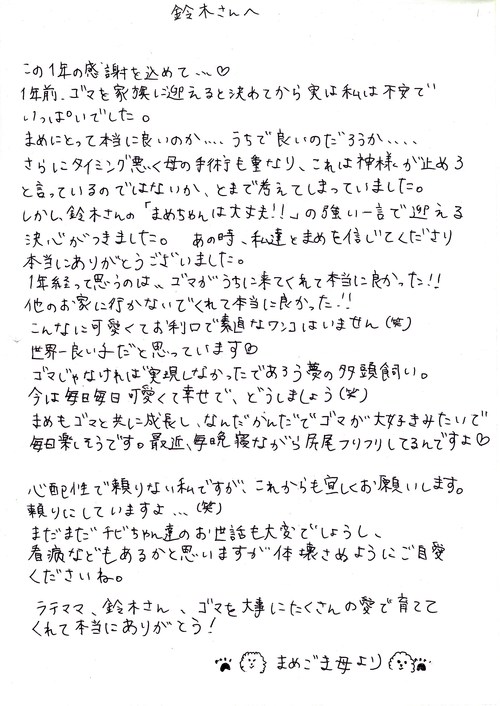 鈴木さんへ
この1年の感謝を込めて...♡
1年前、ゴマを家族に迎えると決めてから実は私は不安で
いっぱいでした。
まめにとって本当に良いのか....うちで良いのだろうか....
さらにタイミング悪く母の手術も重なり、これは神様が止めろ
と言っているのではないか、とまで考えてしまっていました。
しかし、鈴木さんの「まめちゃんは大丈夫!!」の強い一言で迎える
決心がつきました。 あの時、私達とまめを信じてくださり
本当にありがとうございました。
1年経って思うのは、ゴマがうちに来てくれて本当に良かった!!
他のお家に行かないでくれて本当に良かった!!
こんなに可愛くてお利口で素直なワンコはいません(笑)
世界一良い子だと思っています♡
ゴマじゃなければ実現しなかったであろう夢の多頭飼い。
今は毎日毎日可愛くて幸せで、どうしましょう(笑)
まめもゴマと共に成長し、なんだかんだでゴマが大好きみたいで
毎日楽しそうです。最近、毎晩寝ながら尻尾フリフリしてるんですよ♡
心配性で頼りない私ですが、これからも宜しくお願いします。
頼りにしていますよ...(笑)
まだまだチビちゃん達のお世話も大変でしょうし、
看病などもあるかと思いますが体壊さぬようにご自愛
くださいね。
ラテママ、鈴木さん、ゴマを大事にたくさんの愛で育てて
くれて本当にありがとう!
まめごま母より